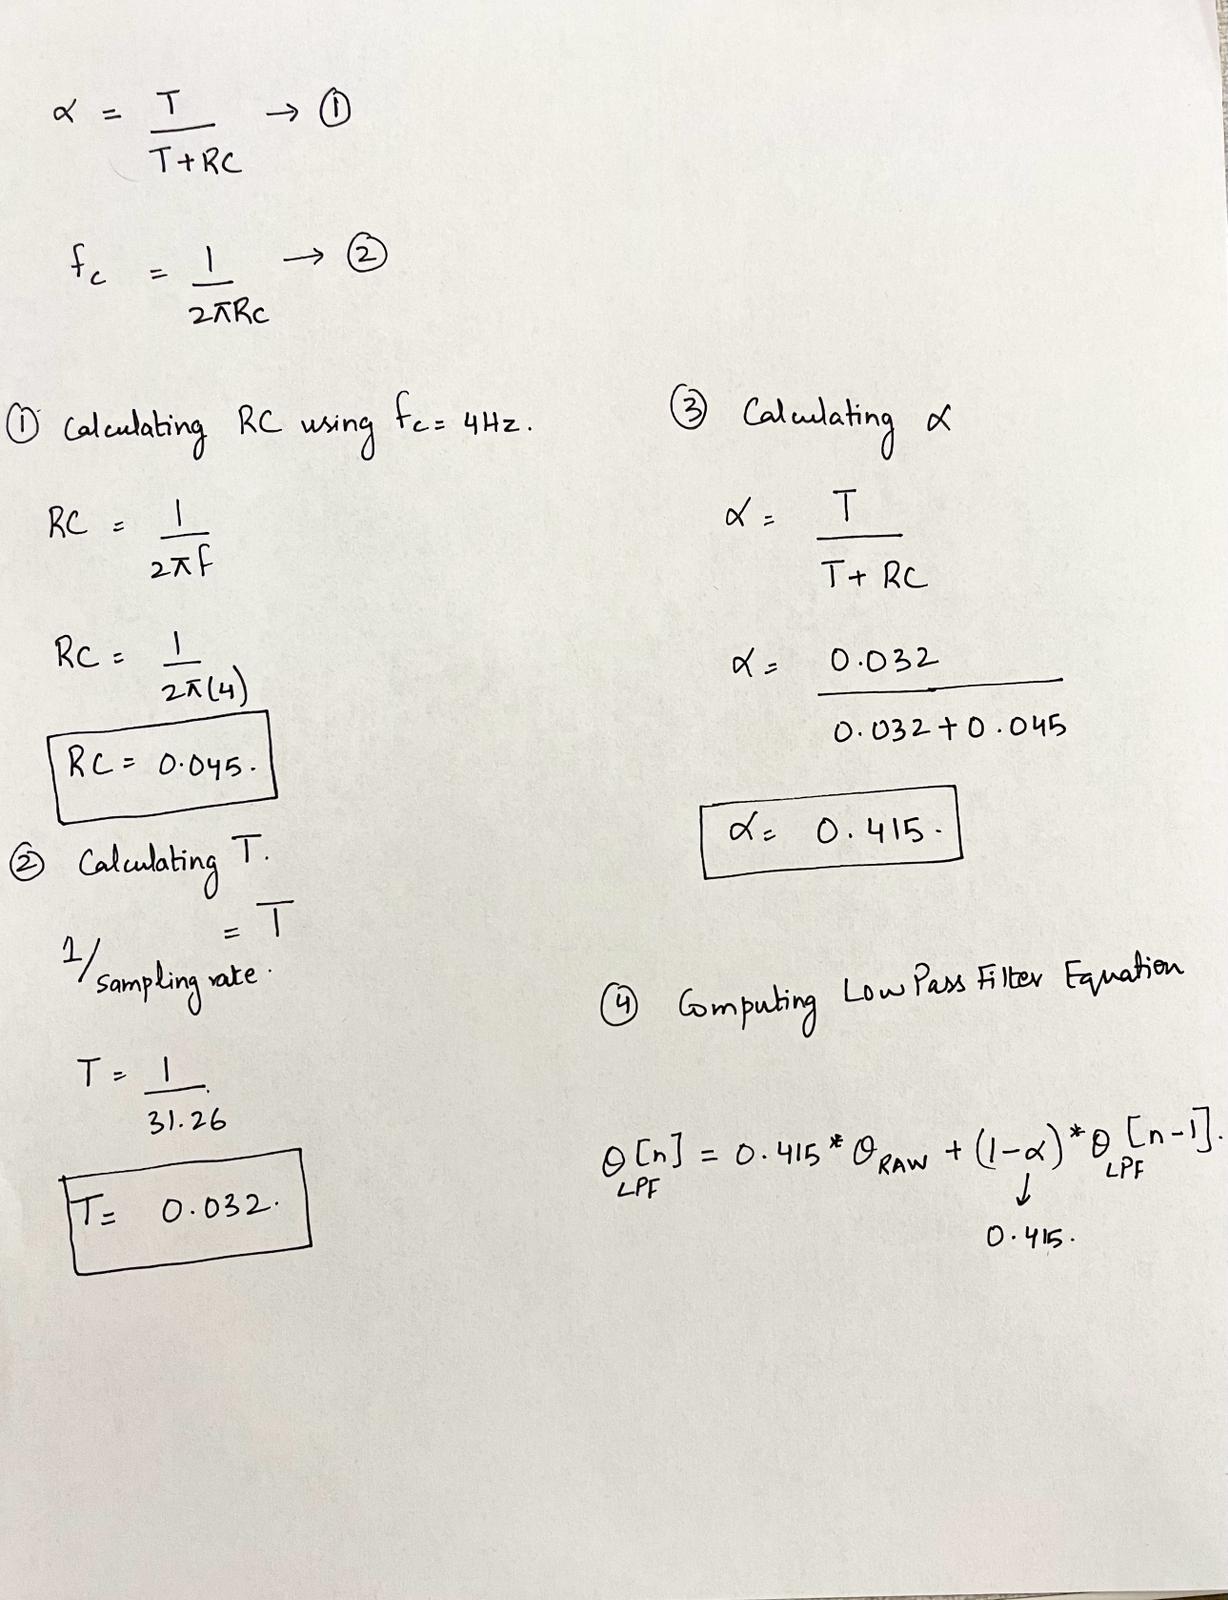 α = T / T+RC → ①
fc = 1 / 2πRC → ②
① Calculating RC using fc = 4Hz.
RC = 1 / 2πf
RC = 1 / 2π(4)
RC = 0.045.
② Calculating T.
1/sampling rate. = T
T = 1 / 31.26
T = 0.032.
③ Calculating α
α = T / T+ RC
α = 0.032 / 0.032+0.045
α = 0.415.
④ Computing Low Pass Filter Equation
θ[n] LPF = 0.415 * θRAW + (1-α) * θ LPF [n-1].
↓
0.415.